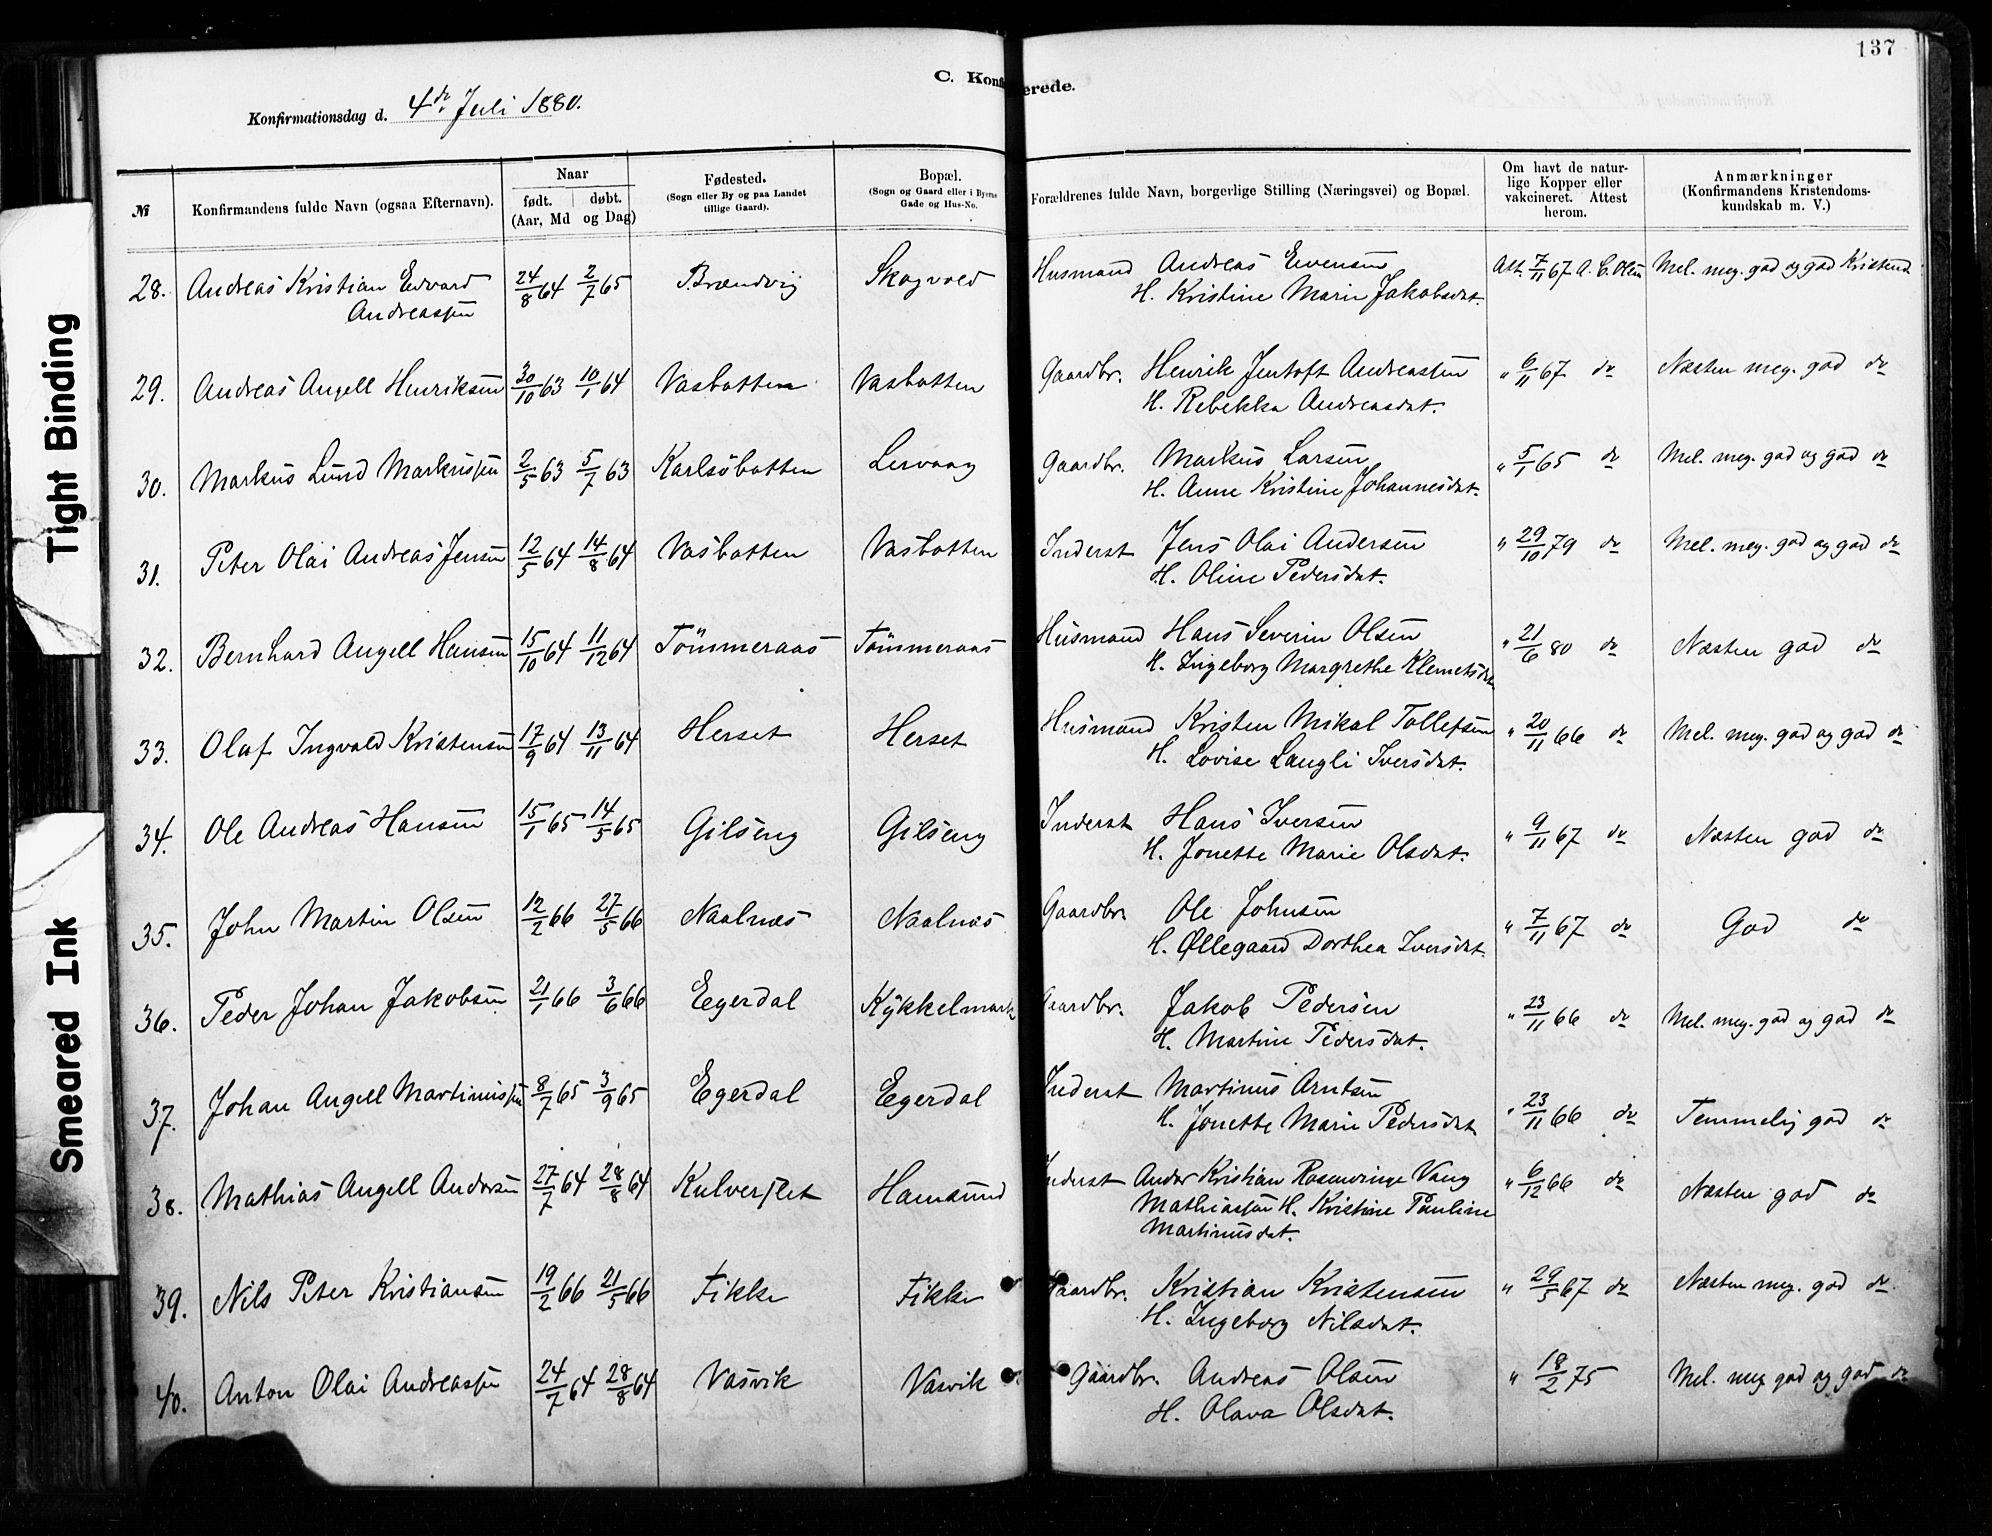 137
C. Konfirmerede.
Konfirmationsdag d. 4de Juli 1880.
№ Konfirmandens fulde Navn (ogsaa Efternavn). Naar født. (Aar, Md døbt. og Dag) Fødested. (Sogn eller By og paa Landet tillige Gaard). Bopæl. (Sogn og Gaard eller i Byerne Gade og Hus-No. Forældrenes fulde Navn, borgerlige Stilling (Næringsvei) og Bopæl. Om havt de naturlige Kopper eller vakcineret. Attest herom. Anmærkninger (Konfirmandens Kristendomskundskab m. V.)
28. Andreas Kristian Edvard 24/8 64 2/7 65 Brændvig Skogvold Husmand Andreas Evensen Att. 7/11 67 A. C. Olsen Mel. meg. god og god Kristend.
Andreassen H. Kristine Marie Jakobsdat.
29. Andreas Angell Henriksen 30/10 63 10/1 64 Vasbotten Vasbotten Gaardbr. Henrik Jentoft Andreassen " 6/11 67 do Næsten meg. god do
H. Rebekka Andreasdat.
30. Markus Lund Markussen 2/5 63 5/7 63 Karlsöbotten Lervaag Gaardbr. Markus Larsen " 5/1 65 do Mel. meg. god og god do
H. Anne Kristine Johannesdat.
31. Peter Olai Andreas Jensen 12/5 64 14/8 64 Vasbotten Vasbotten Inderst Jens Olai Andersen " 29/10 79 do Mel. meg. god og god do
H. Oline Pedersdat.
32. Bernhard Angell Hansen 15/10 64 11/12 64 Tömmeraas Tömmeraas Husmand Hans Severin Olsen " 21/6 80 do Næsten god do
H. Ingeborg Margrethe Klemetsdat
33. Olaf Ingvald Kristensen 17/9 64 13/11 64 Herset Herset Husmand Kristen Mikal Tollefsen " 20/11 66 do Mel. meg. god og god do
H. Lovise Langli Iversdat.
34. Ole Andreas Hansen 15/1 65 14/5 65 Gilseng Gilseng Inderst Hans Iversen " 9/11 67 do Næsten god do
H. Jonette Marie Olsdat.
35. John Martin Olsen 12/2 66 27/5 66 Naalnæs Naalnæs Gaardbr. Ole Johnsen " 7/11 67 do God do
H. Øllegaard Dorthea Iversdat.
36. Peder Johan Jakobsen 21/1 66 3/6 66 Egerdal Kykkelmark Gaardbr. Jakob Pedersen " 23/11 66 do Mel. meg. god og god do
H. Martine Pedersdat.
37. Johan Angell Martinussen 8/7 65 3/9 65 Egerdal Egerdal Inderst Martinus Arntsen " 23/11 66 do Temmelig god do
H. Jonette Marie Pedersdat
38. Mathias Angell Andersen 27/7 64 28/8 64 Kulverflet Hamsund Inderst Ander Kristian Rosenvinge Vang " 6/12 66 do Næsten god do
Mathiassen H. Kristine Pauline
Martinusdat.
39. Nils Peter Kristiansen 19/2 66 21/5 66 Fikke Fikke Gaardbr. Kristian Kristensen " 29/5 67 do Næsten meg. god do
H. Ingeborg Nilsdat.
40. Anton Olai Andreassen 24/7 64 28/8 64 Vasvik Vasvik Gaardbr. Andreas Olsen " 18/2 75 Mel. meg god og god do
H. Olava Olsdat.
Tight Binding
Smeared Ink